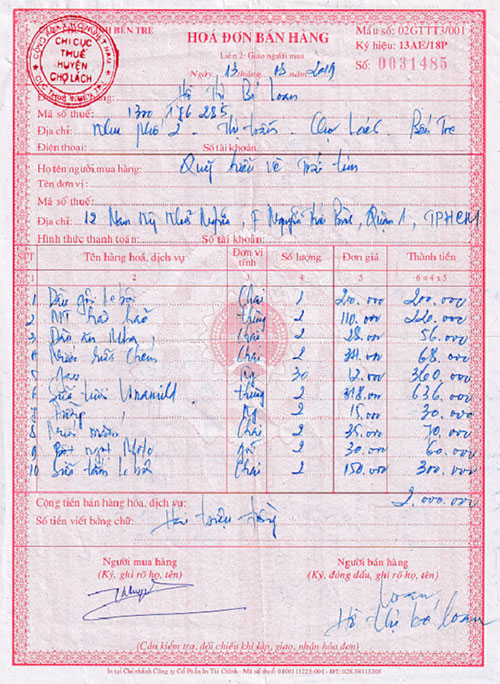 BẾN TRE
HOÁ ĐƠN BÁN HÀNG
Mẫu số: 02GTTT3/001
CHI CỤC
THUẾ
HUYỆN
CHỢ LÁCH
Liên 2: Giao người mua
Ký hiệu: 13AE/18P
Ngày 13 tháng 03 năm 2019
Số: 0031485
Hồ Thị Bé Loan
Mã số thuế: 1300 186 285
Địa chỉ: Khu phố 2 - Thị trấn - Chợ Lách - Bến Tre
Điện thoại: Số tài khoản:
Họ tên người mua hàng: Quỹ hiểu về trái tim
Tên đơn vị:
Mã số thuế:
Địa chỉ: 12 Nam Kỳ Khởi Nghĩa, F Nguyễn Thái Bình, Quận 1, TPHCM
Hình thức thanh toán: Số tài khoản:
Tên hàng hoá, dịch vụ Đơn vị tính Số lượng Đơn giá Thành tiền
1 2 3 4 5 6=4x5
1 Dầu gội Chai 1 200.000 200.000
2 Mì hảo hảo thùng 2 110.000 220.000
3 Dầu ăn Chai 2 28.000 56.000
4 Nước rửa chén Chai 2 34.000 68.000
5 Kg 30 12.000 360.000
6 Sữa tươi Vinamilk thùng 2 318.000 636.000
7 Đường Kg 2 15.000 30.000
8 Nước mắm Chai 2 35.000 70.000
9 Bột ngọt gói 2 30.000 60.000
10 Sữa tắm Chai 2 150.000 300.000
Cộng tiền bán hàng hóa, dịch vụ: 2.000.000
Số tiền viết bằng chữ: Hai triệu đồng
Người mua hàng Người bán hàng
(Ký, ghi rõ họ, tên) (Ký, đóng dấu, ghi rõ họ, tên)
Loan
Hồ Thị bé Loan
(Cần kiểm tra, đối chiếu khi lập, giao, nhận hóa đơn)
In tại Chi nhánh Công ty Cổ Phần In Tài Chính - Mã số thuế: 0100111225-004 - ĐT: 028.38113305